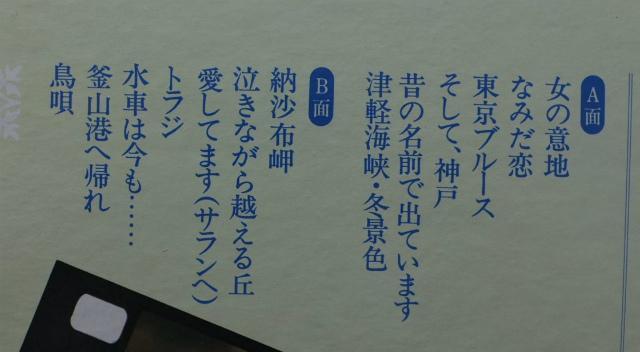 A面
女の意地
なみだ恋
東京ブルース
そして、神戸
昔の名前で出ています
津軽海峡・冬景色
B面
納沙布岬
泣きながら越える丘
愛してます(サランヘ)
トラジ
水車は今も……
釜山港へ帰れ
鳥唄